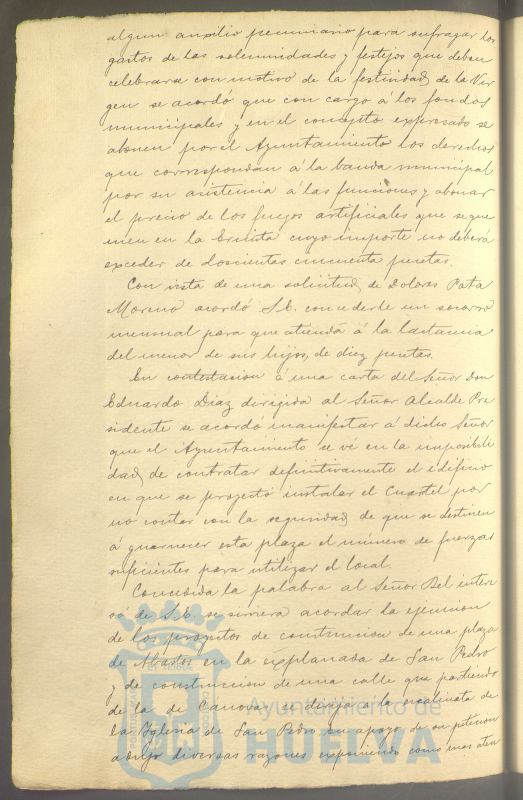 algun auxilio pecuniario para sufragar los
gastos de las solemnidades y festejos que deben
celebrarse con motivo de la festividad de la Vir
gen se acordó que con cargo á los fondos
municipales y en el concepto expresado se
abonen por el Ayuntamiento los derechos
que correspondan á la banda municipal
por su asistencia á las funciones y abonar
el precio de los fuegos artificiales que se que
men en la Ermita cuyo importe no deberá
exceder de doscientas cincuenta pesetas.
Con vista de una solicitud de Dolores Pata
Moreno acordó S.E. concederle un socorro
mensual para que atienda á la lactancia
del menor de sus hijos, de diez pesetas.
En contestacion á una carta del Señor Don
Eduardo Diaz dirigida al Señor Alcalde Pre
sidente se acordó manifestar á dicho Señor
que el Ayuntamiento se vé en la imposibili
dad de contratar definitivamente el edificio
en que se proyectó instalar el Cuartel por
no contar con la seguridad de que se destinen
á guarnecer esta plaza el número de fuerzas
suficientes para utilizar el local.
Concedida la palabra al Señor Bel intere
só de S.E. se sirviera acordar la ejecucion
de los proyectos de construccion de una plaza
de Abastos en la explanada de San Pedro
y de construccion de una calle que partiendo
de la de Canovas se dirija á la escalinata de
la Iglesia de San Pedro en apoyo de su peticion
adujo diversas razones exponiendo como mas aten
Ayuntamiento de
HUELVA